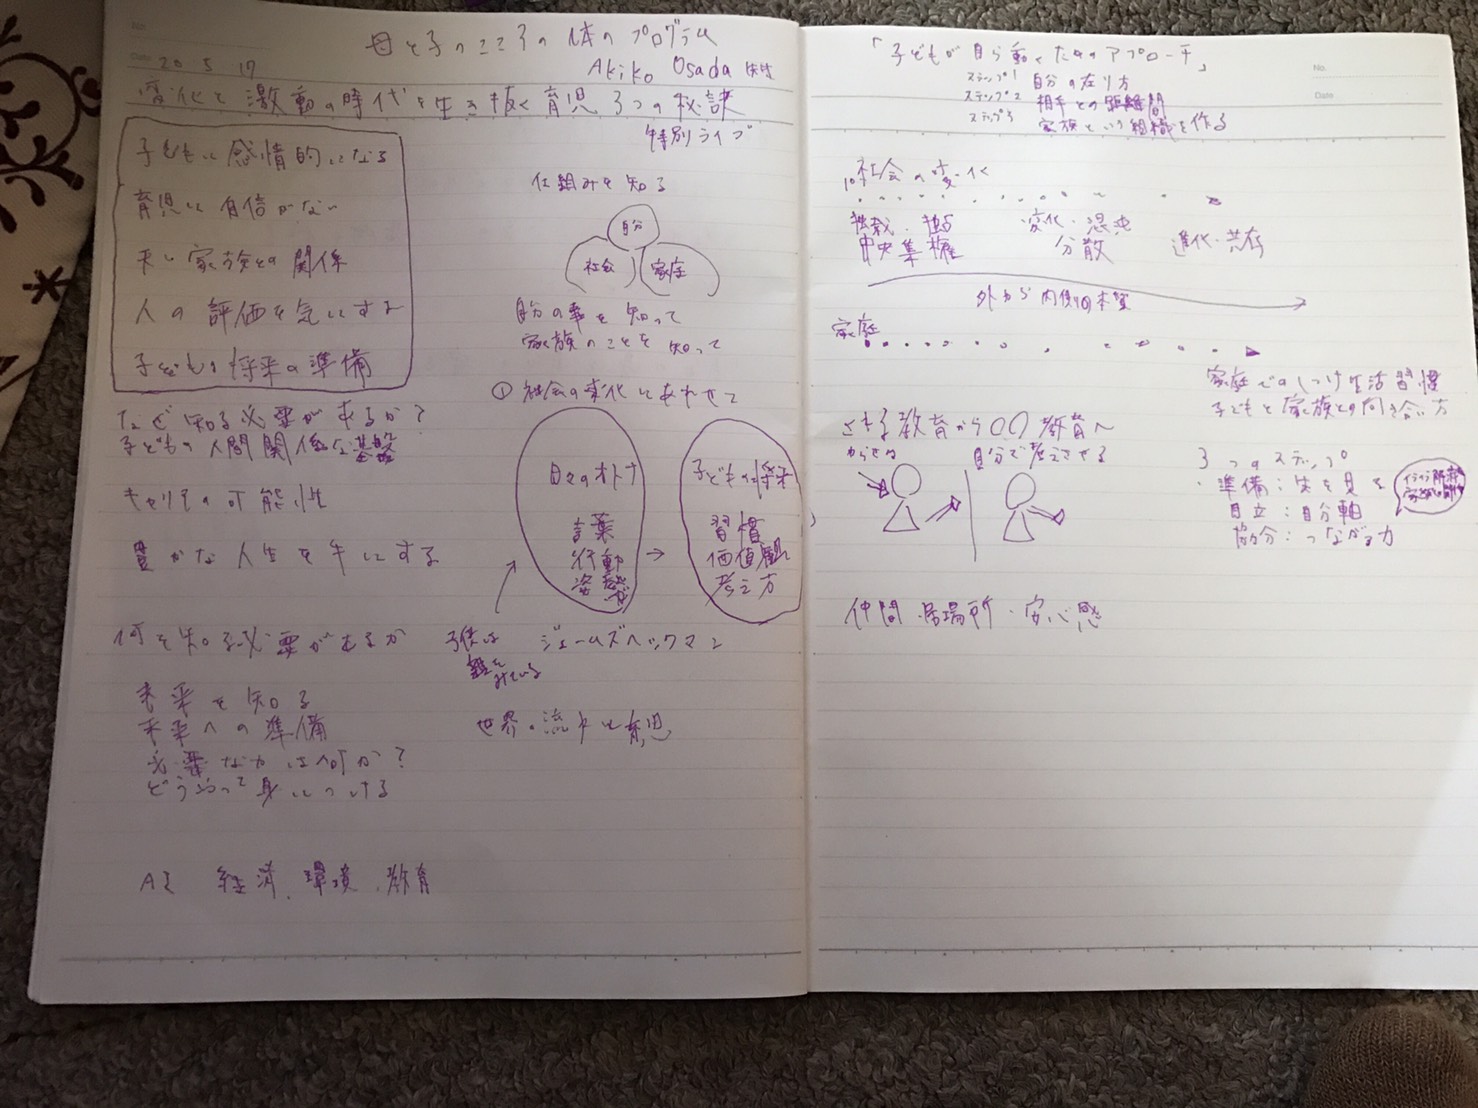 母と子のこころの体のプログラム
Date 20 5 17
Akiko Osada 先生
変化と激動の時代を生き抜く育児3つの秘訣
特別ライブ
子どもに感情的になる
育児に自信がない
家族との関係
人の評価を気にする
子どもの将来の準備
なぜ知る必要があるか?
子どもの人間関係な基盤
キャリアの可能性
豊かな人生を手にする
何を知る必要があるか
未来を知る
未来への準備
必要な力は何か?
どうやって身につける
AI 経済、環境、教育
仕組みを知る
自分
社会
家庭
自分の事を知って
家族のことを知って
① 社会の変化にあわせて
日々のオトナ
言葉
行動
姿勢
→
子どもの将来
習慣
価値観
考え方
子供は
みている
ジェームズヘックマン
世界の流れと育児
「子どもが自ら動くためのアプローチ」
No.
Date
ステップ1 自分の在り方
ステップ2 相手との距離間
ステップ3 家族という組織を作る
社会の変化
独裁・独占
中央集権
変化・混沌
分散
進化・共存
外から内側の本質
家庭
家庭でのしつけ生活習慣
子どもと家族との向き合い方
させる教育から〇〇教育へ
からせる
自分で考えさせる
3つのステップ
・準備:先を見る
自立:自分軸
協分:つながる力
仲間・居場所・安心感